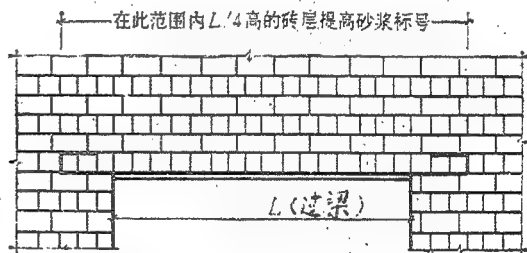 在此范围内L/4高的砖层提高砂浆标号
L(过梁)